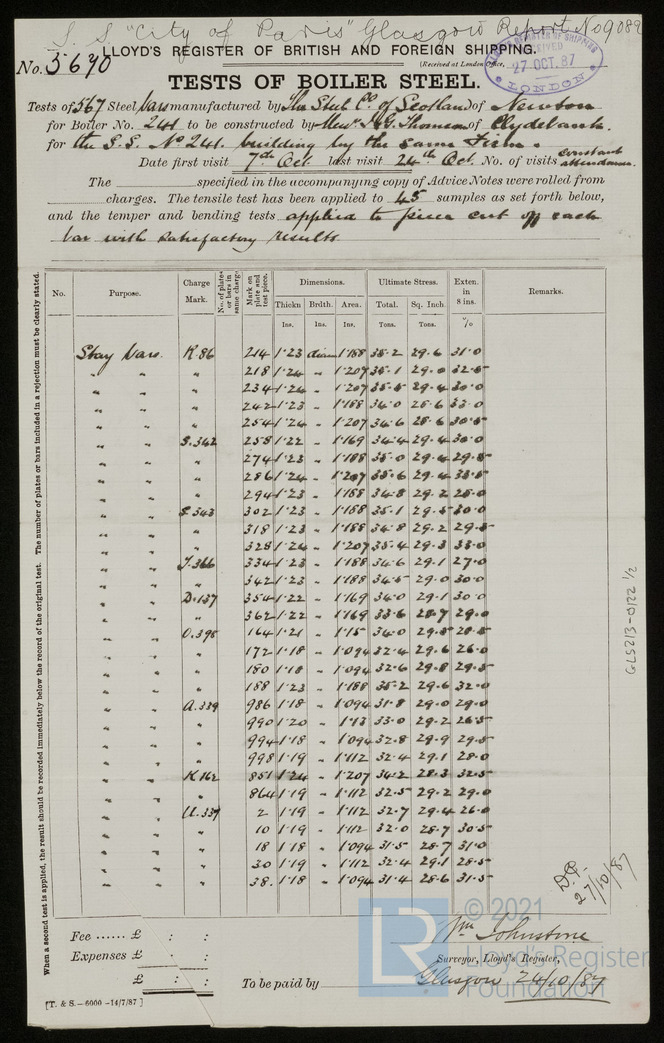 S. S. "City of Paris" Glasgow Report No 9089
LLOYD'S REGISTER OF BRITISH AND FOREIGN SHIPPING.
No. 5690
(Received at London Office,
LLOYD'S REGISTER OF SHIPPING
RECEIVED
27 OCT. 87
LONDON
TESTS OF BOILER STEEL.
Tests of 567 Steel bars manufactured by The Steel Co. of Scotland of Newton
for Boiler No. 241 to be constructed by Messrs J & G. Thomson of Clydebank.
for the S.S. No 241. building by the same Firm.
Date first visit 7th Oct. last visit 24th Oct. No. of visits constant attendance.
The specified in the accompanying copy of Advice Notes were rolled from
charges. The tensile test has been applied to 45 samples as set forth below,
and the temper and bending tests applied to piece cut off each
bar with satisfactory results.
No. Purpose. Charge Mark. No. of plates or bars in same charge Mark on plate and test piece. Dimensions. Ultimate Stress. Exten. in 8 ins. Remarks.
Thickn Brdth. Area. Total. Sq. Inch.
Ins. Ins. Ins. Tons. Tons. %
Stay bars. K.86 214 1.23 diam 1.188 35.2 29.6 31.0
" " 218 1.24 " 1.207 35.1 29.0 32.5
" " 234 1.24 " 1.207 35.5 29.4 30.0
" " 242 1.23 " 1.188 34.0 28.6 33.0
" " 254 1.24 " 1.207 34.6 28.6 30.5
" S.342 258 1.22 " 1.169 34.4 29.4 30.0
" " 274 1.23 " 1.188 35.0 29.4 29.5
" " 286 1.24 " 1.207 35.6 29.4 33.5
" " 294 1.23 " 1.188 34.8 29.2 28.0
" S.343 302 1.23 " 1.188 35.1 29.5 30.0
" " 318 1.23 " 1.188 34.8 29.2 29.5
" " 328 1.24 " 1.207 35.4 29.3 33.0
" T.366 334 1.23 " 1.188 34.6 29.1 27.0
" " 342 1.23 " 1.188 34.5 29.0 30.0
" D.137 354 1.22 " 1.169 34.0 29.1 30.0
" " 362 1.22 " 1.169 33.6 28.7 29.0
" O.398 164 1.21 " 1.15 34.0 29.5 28.5
" " 172 1.18 " 1.094 32.4 29.6 26.0
" " 180 1.18 " 1.094 32.6 29.8 29.5
" " 188 1.23 " 1.188 35.2 29.6 32.0
" A.339 986 1.18 " 1.094 31.8 29.0 29.0
" " 990 1.20 " 1.13 33.0 29.2 26.5
" " 994 1.18 " 1.094 32.8 29.9 29.5
" " 998 1.19 " 1.112 32.4 29.1 28.0
" K.162 851 1.24 " 1.207 34.2 28.3 32.5
" " 864 1.19 " 1.112 32.5 29.2 29.0
" U.337 2 1.19 " 1.112 32.7 29.4 26.0
" " 10 1.19 " 1.112 32.0 28.7 30.5
" " 18 1.18 " 1.094 31.5 28.7 31.0
" " 30 1.19 " 1.112 32.4 29.1 28.5
" " 38. 1.18 " 1.094 31.4 28.6 31.5
When a second test is applied, the result should be recorded immediately below the record of the original test. The number of plates or bars included in a rejection must be clearly stated.
GLS213-0122 1/2
27/10/87
Fee ...... £ : :
Expenses £ : :
£ : :
To be paid by
Wm Johnstone
Surveyor, Lloyd's Register,
Glasgow 24/10/87
[T. & S.—6000—14/7/87]
LR
© 2021
Lloyd's Register
Foundation